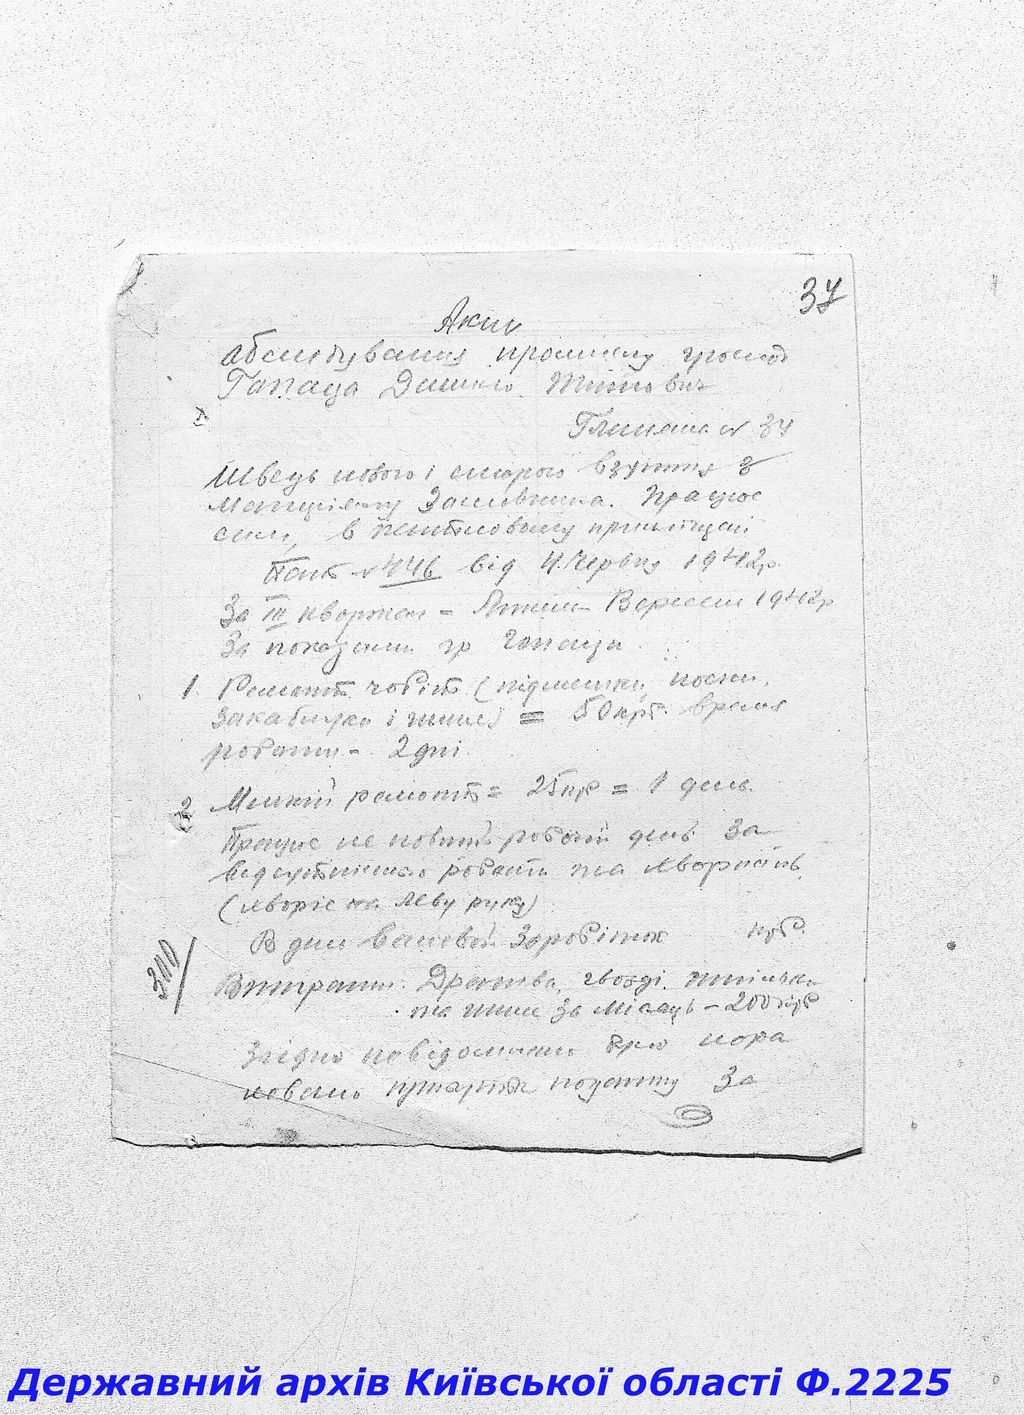 37
Акт
обслідування промислу громад
Гапада
№ 34
Швець нового і старого взуття з
матеріялу Замовника. Працює
сам, в
Пат №446 від 4. Червня 1942р.
За III квартал = Вересень 1942р
За показами гр Гапади
1. Ремонт чобіт (підметки, носки,
закаблуки і = 50крб. время
работи - 2 дні
2 Мелкий ремонт = 25крб = 1 день.
Працює не повний робочий день за
відсутністю роботи та хворість,
(хворіє на леву руку)
В день валовой Заробіток крб.
300/
Витрати: Дратва, гвозді, шпільки
та инше За місяць - 200 крб
Згідно повідомлення про нара
ховано податку За
Державний архів Київської області Ф.2225